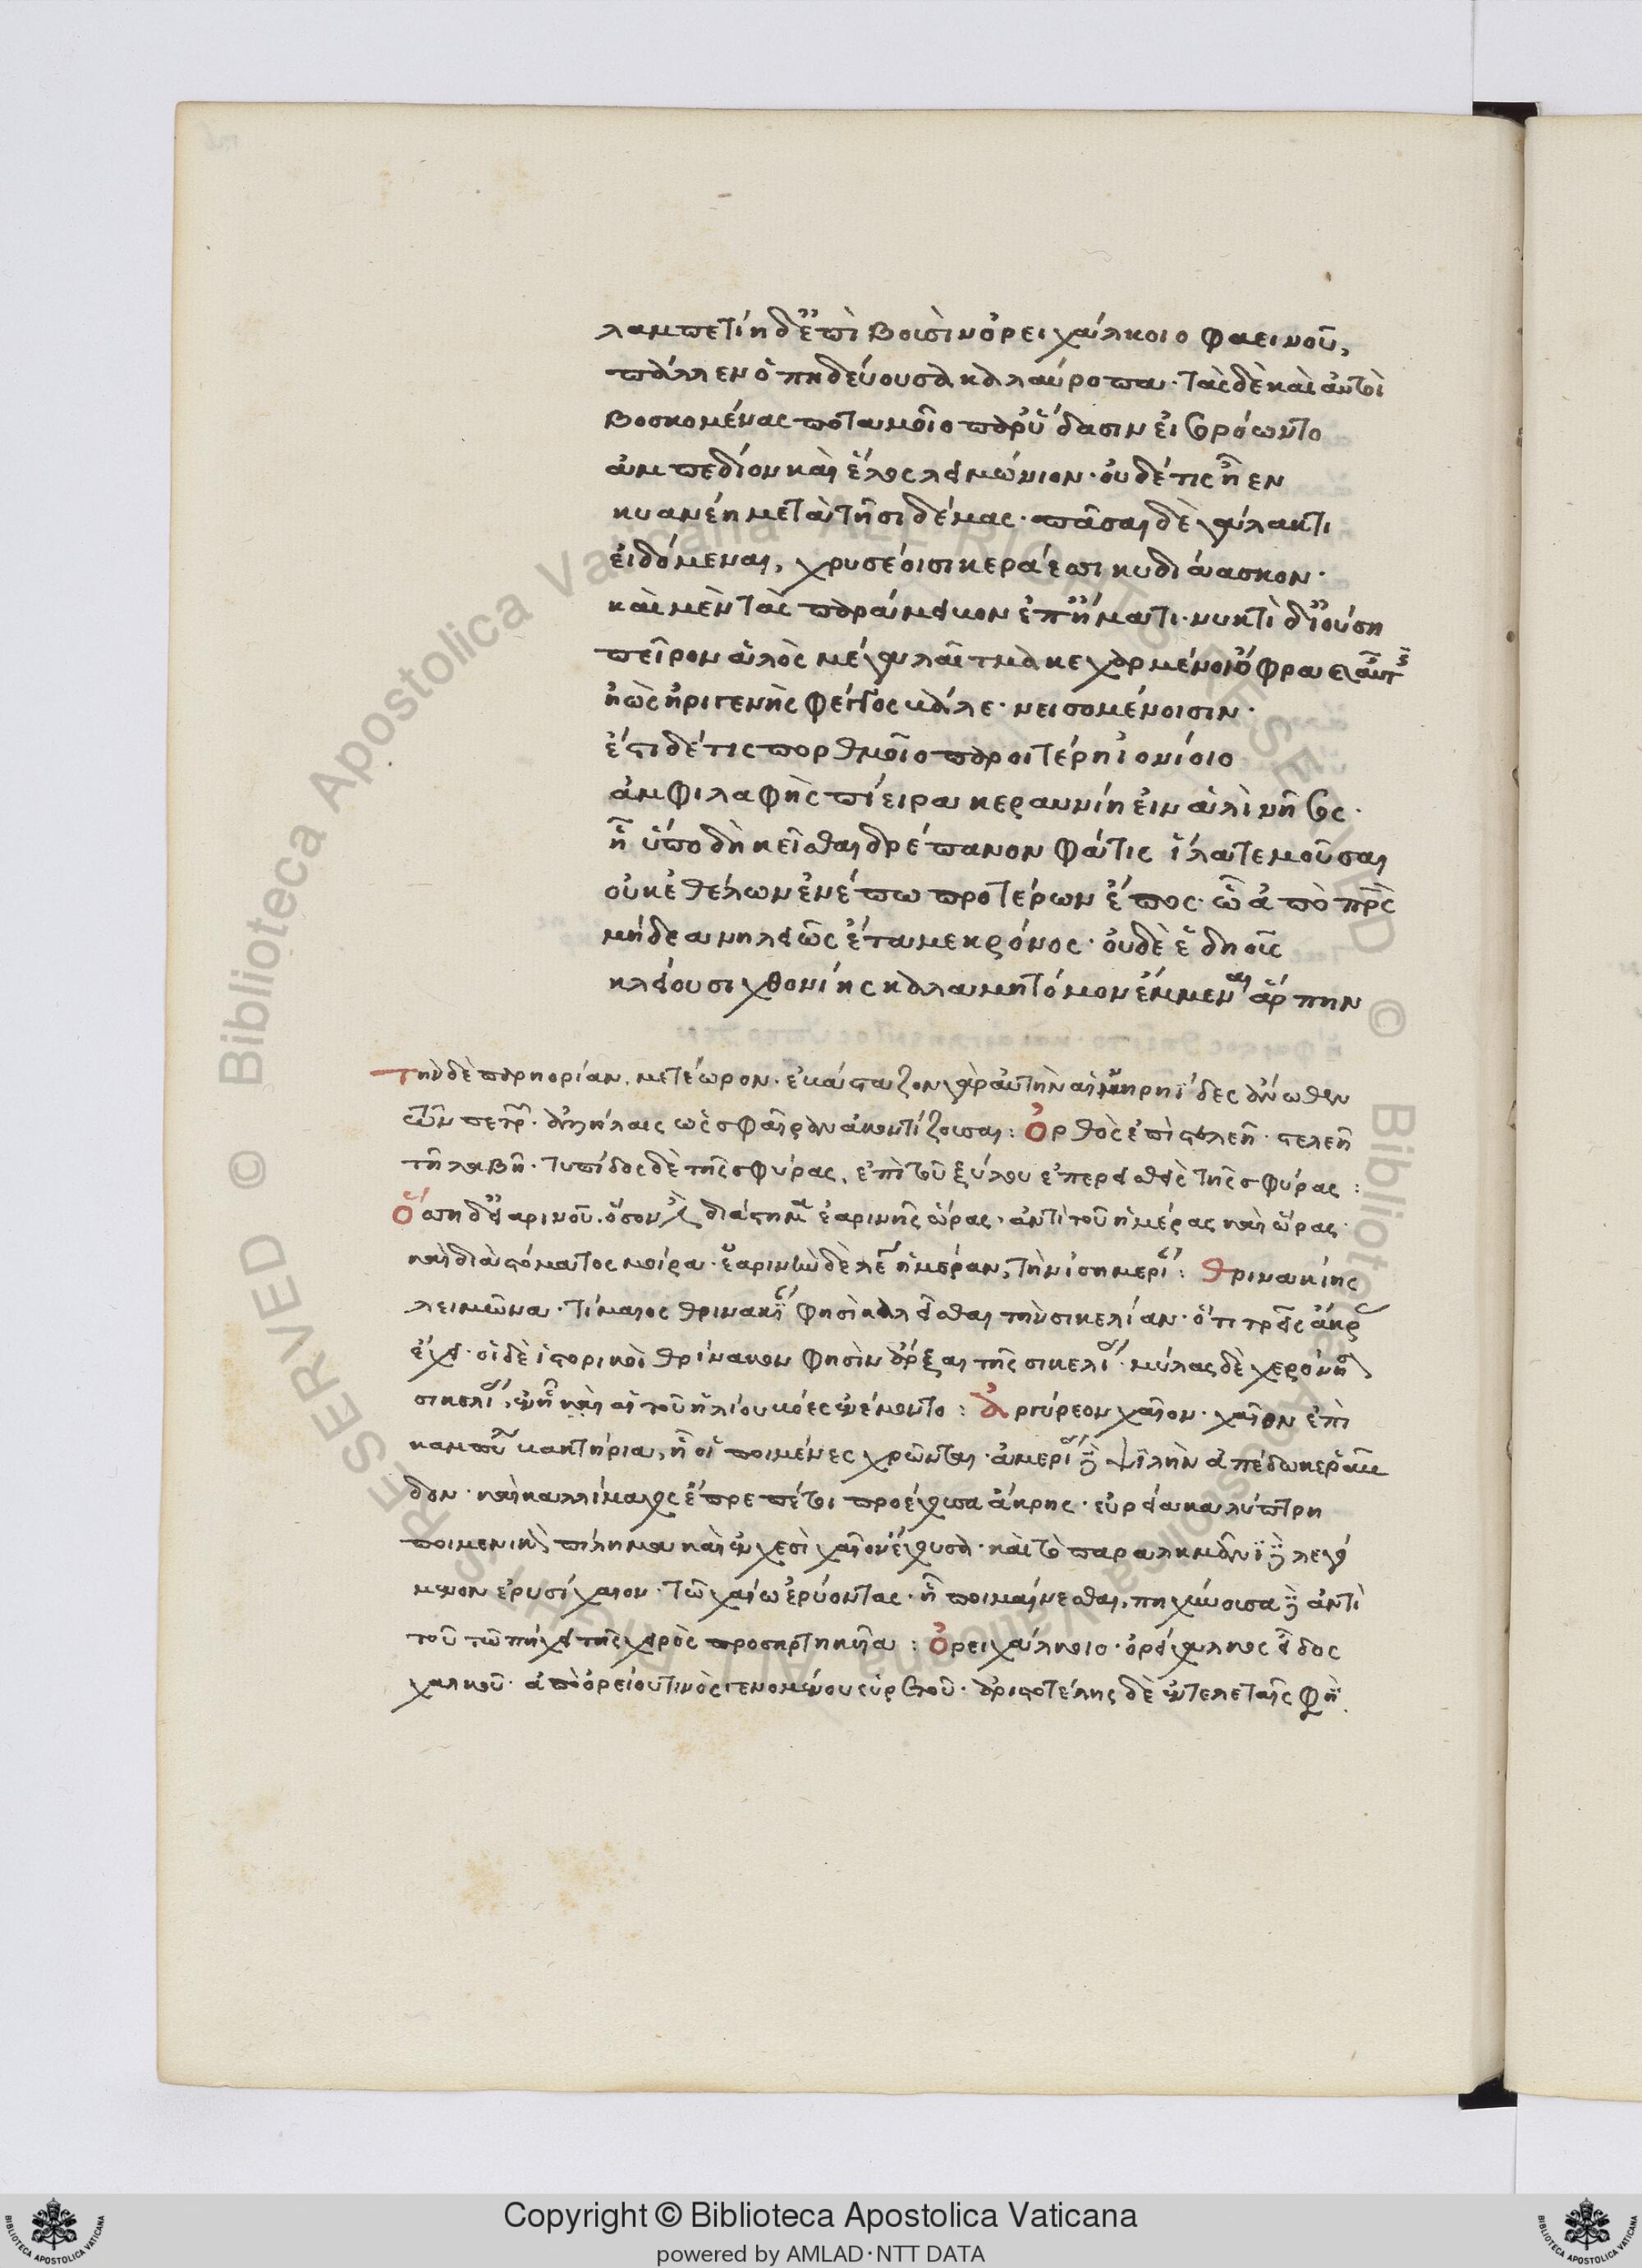 λαμπετίη δ᾽ ἐπὶ βουσὶν ὀρειχάλκοιο φαεινοῦ,
πάλλεν ὀπηδεύουσα καλαύροπα· τὰς δὲ καὶ αὐτοὶ
βοσκομένας ποταμοῖο παρ᾽ ὕδασιν εἰσορόωντο
ἂμ πεδίον καὶ ἕλος λειμώνιον· οὐδέ τις ἦεν
κυανέη μετὰ τῆσι δέμας· πᾶσαι δὲ γάλακτι
εἰδόμεναι, χρυσέοισι κεράεσι κυδιάασκον·
καὶ μὲν τὰς παράμειβον ἐπ᾽ ἤματι· νυκτὶ δ᾽ ἰούση
πεῖρον ἁλὸς μέγα λαῖτμα κεχαρμένοι ὄφρα
ἠὼς ἠριγενὴς φέγγος βάλε· νεισομένοισιν·
ἔστι δέ τις πορθμοῖο παροιτέρη ἰονίοιο
ἀμφιλαφὴς πίειρα κεραυνίη εἰν ἁλὶ νῆσος·
ἧ ὕπο δὴ κεῖσθαι δρέπανον φάτις ἵλατε μοῦσαι
οὐκ ἐθέλων ἐνέπω προτέρων ἔπος· ὧ ἀπὸ πρς
μήδεα νηλειῶς ἔταμε κρόνος· οὐδὲ ἕ δηοῦς
κλείουσι χθονίης καλαμητόμον ἔμμεναι ἅρπην
τὴν δὲ παρηορίαν, μετέωρον· ἐκούφιζον γὰρ αὐτὴν αἱ νηρηΐδες ἄνωθεν
τῶν πετρ· ἀλλήλαις ὡς σφαῖραν ἀκοντίζουσαι: Ὀρθὸς ἐπὶ στελεῆ· στελεῆ
τῆ λαβῆ· τυπίδος δὲ τῆς σφύρας, ἐπὶ τοῦ ξύλου ἐπερεισθεὶς τῆς σφύρας:
Ὅση δ᾽ εἰαρινοῦ· ὅσον διάστημα ἐαρινῆς ὥρας· ἀντὶ τοῦ ἡμέρας καὶ ὥρας·
καὶ διὰ στόματος μοῖρα· ἐαρινὴν δὲ λέγ ἡμέραν, τὴν ἰσημερί: Θρινακίης
λειμῶνα· τίμαιος θρινακί φησὶ καλεῖσθαι τὴν σικελίαν· ὅτι τρεῖς ἄκρ
ἔχει· οἱ δὲ ἱστορικοὶ θρίνακον φησὶν ἄρξαι τῆς σικελί· μύλας δὲ χερόνη
σικελί, ἐν ἧ καὶ αἱ τοῦ ἡλίου βόες ἐνέμοντο: Ἀργύρεον χαῖον· χαῖον ἐπὶ
καμπ βακτηρία, ἧ οἱ ποιμένες χρῶνται· ἀμερί ψιλὴν ἀπέδωκε
δον· καὶ καλλίμαχος ἔπρεπέ τοι προέχουσα κάρης· εὐρεῖα καλύπτρη
ποιμενικὸν πίλημα καὶ ἐν χερσὶ χαῖον ἔχουσα· καὶ τὸ παρ᾽ ἀλκμᾶνι λεγό
μενον ἐρυσίχαιον· τῶ χαίω ἐρύοντας· ἢ ποιμαίνεσθαι, πηχύνουσα ἀντὶ
τοῦ τῶ πήχει τῆς χειρὸς προσηρτηκυῖα: Ὀρειχάλκοιο· ὀρείχαλκος εἶδος
χαλκοῦ· ἀπὸ ὀρείου τινὸς γενομένου εὑρετοῦ· ἀριστοτέλης δὲ ἐν τελεταῖς φη
Copyright © Biblioteca Apostolica Vaticana
powered by AMLAD·NTT DATA